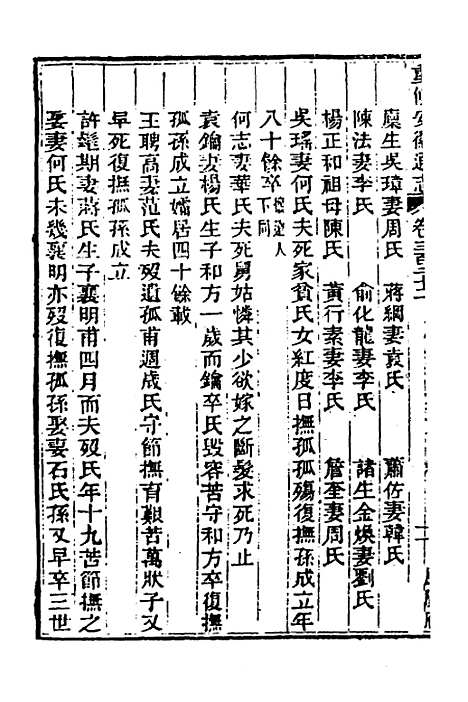 重修安徽通志 卷三百三十一
廩生吳璋妻周氏 蔣綱妻袁氏 蕭佐妻韓氏
陳法妻李氏 俞化龍妻李氏 諸生金煥妻劉氏
楊正和祖母陳氏 黃行素妻李氏 詹奎妻周氏
吳瑤妻何氏夫死家貧氏女紅度日撫孤孤殤復撫孫成立年
八十餘卒 下同
何志妻華氏夫死舅姑憐其少欲嫁之斷髮求死乃止
袁鑰妻楊氏生子和方一歲而鑰卒氏毀容苦守和方卒復撫
孤孫成立孀居四十餘載
王聘高妻范氏夫歿遺孤甫週歲氏守節撫育艱苦萬狀子又
早死復撫孤孫成立
許髦期妻蔣氏生子襄明甫四月而夫歿氏年十九苦節撫之
娶妻何氏未幾襄明亦歿復撫孤孫娶妻石氏孫又早卒三世